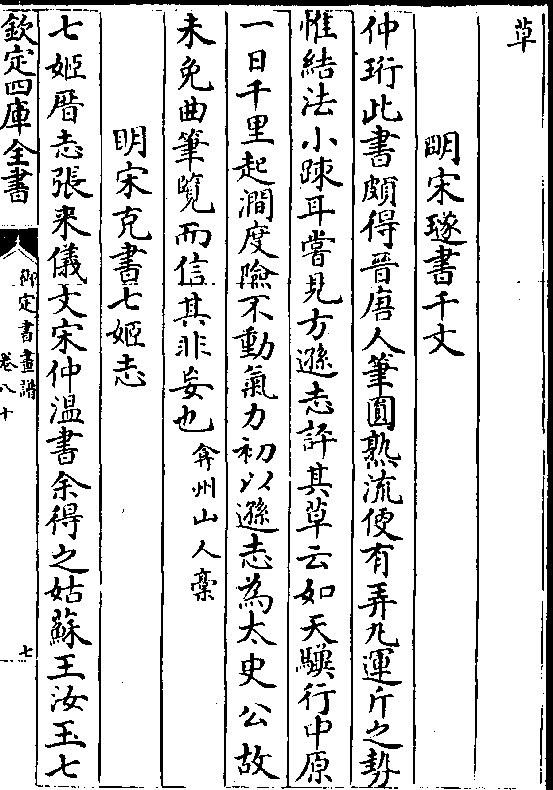 草
明宋璲書千文
仲珩此書頗得晉唐人筆圓熟流便有弄丸運斤之勢
惟結法小踈耳嘗見方遜志評其草云如天驥行中原
一日千里起澗度險不動氣力初以遜志為太史公故
未免曲筆覽而信其非妄也 弇州山人稾
明宋克書七姬志
七姬厝志張来儀文宋仲温書余得之姑蘇王汝玉七
欽定四庫全書
御定書畫譜
卷八十
七